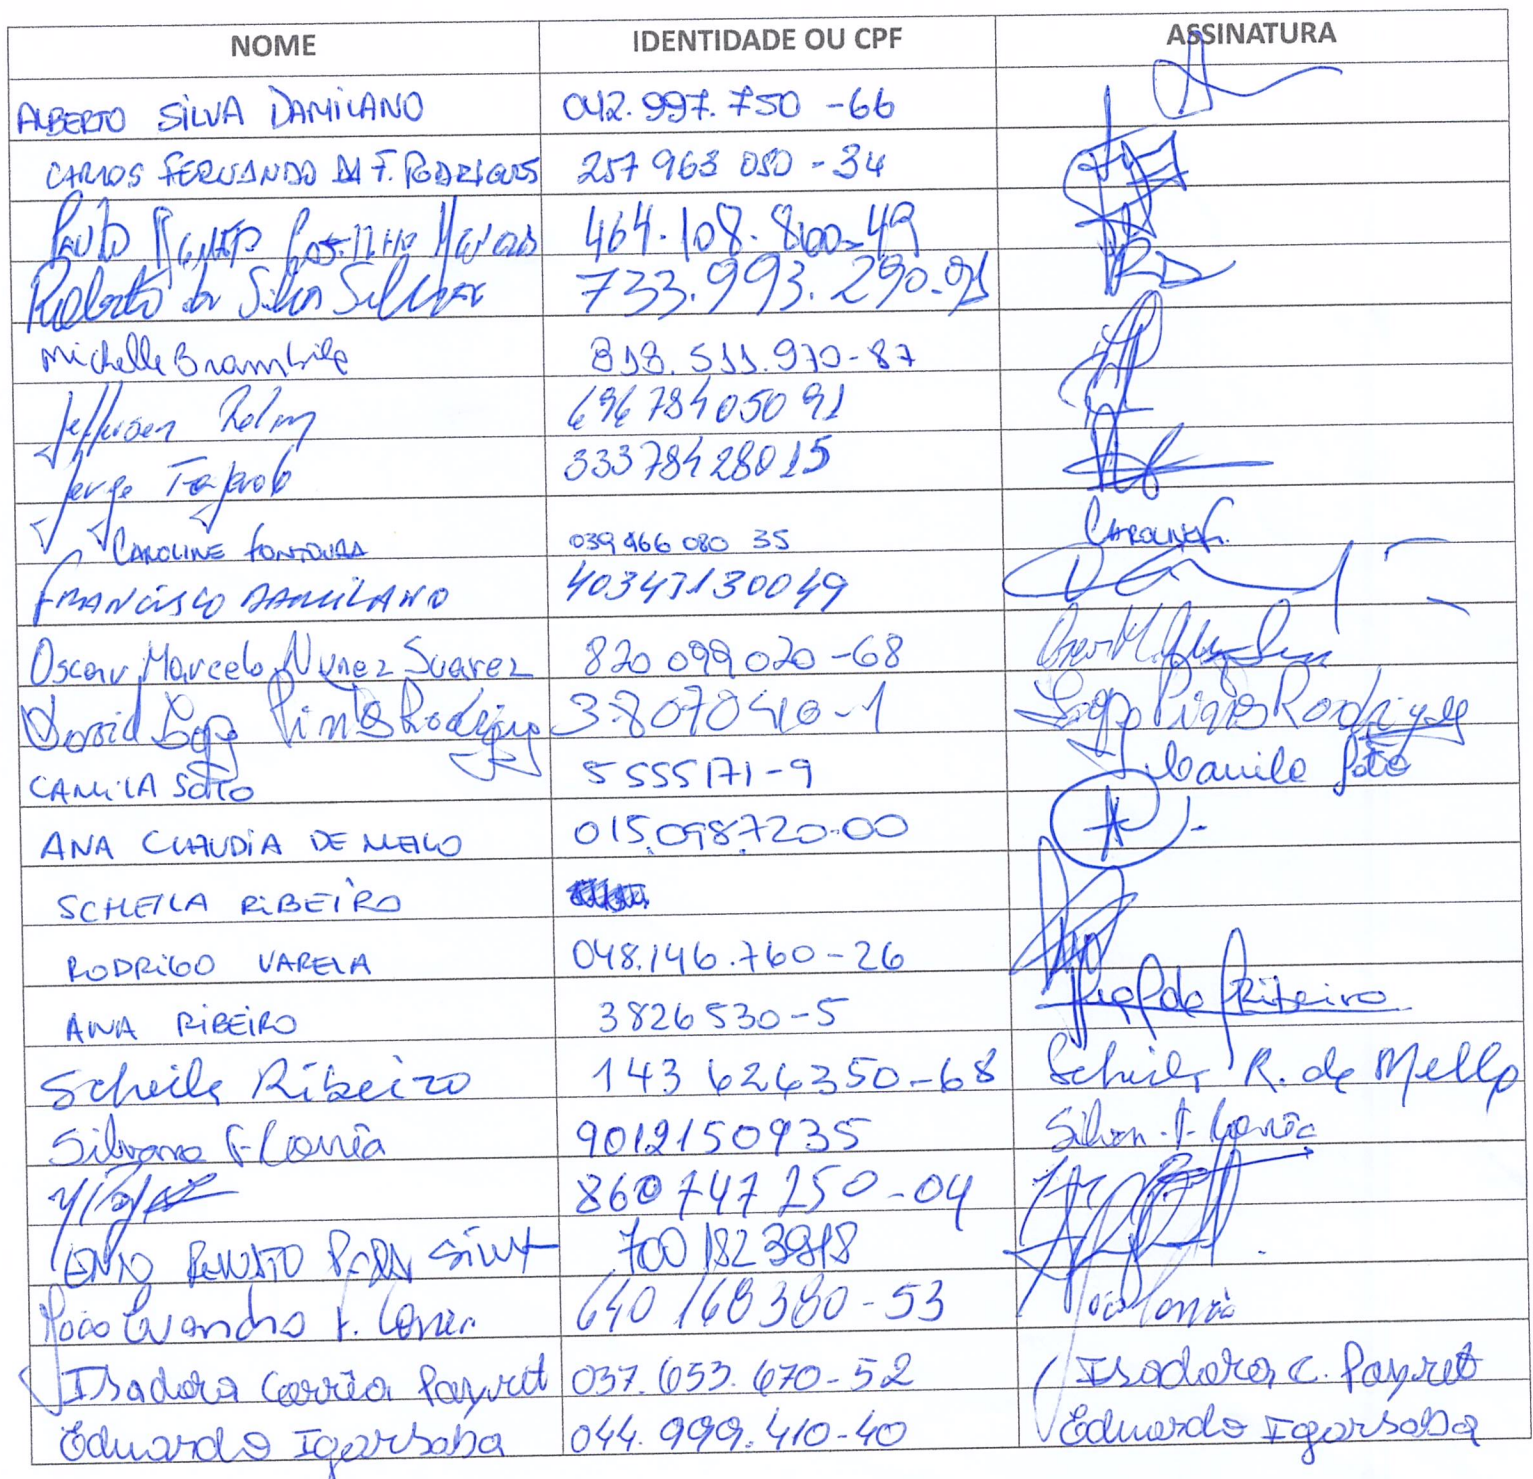 NOME IDENTIDADE OU CPF ASSINATURA
ALBERTO SILVA DAMILANO 042.997.750-66
CARLOS FERNANDO DA F. RODRIGUES 257 963 050-34
Paulo 464.108.800-49
Roberto da Silva 733.993.290-91
Michelle Brambila 818.511.970-87
Jefferson 696 784 050 91
Jorge 333 784 280 15
CAROLINE FONTOURA 039 466 080 35 CAROLINE F.
FRANCISCO DAMILANO 40347130049
Oscar Marcelo Nunez Suarez 820 099 020-68
Pinto Rodrigues 38070410-1 Lopo Pinto Rodrigues
CAMILA SOTO 5555171-9 Camila Soto
ANA CLAUDIA DE MELLO 015.098.720-00
SCHEILA RIBEIRO
RODRIGO VARELA 048.146.760-26
ANA RIBEIRO 3826530-5 Ribeiro
Scheila Ribeiro 143 626350-68 Scheila R. de Mello
Silvana F. Corrêa 9012150935 Silvan. F. Corrêa
860747250-04
ENIO RENATO SILVA 7001823918
João Evandro F. Correa 640 168 380-53 João Corrêa
Isadora Corrêa Payret 037.653.670-52 Isadora C. Payret
Eduardo Igarsaba 044.999.410-40 Eduardo Igarsaba